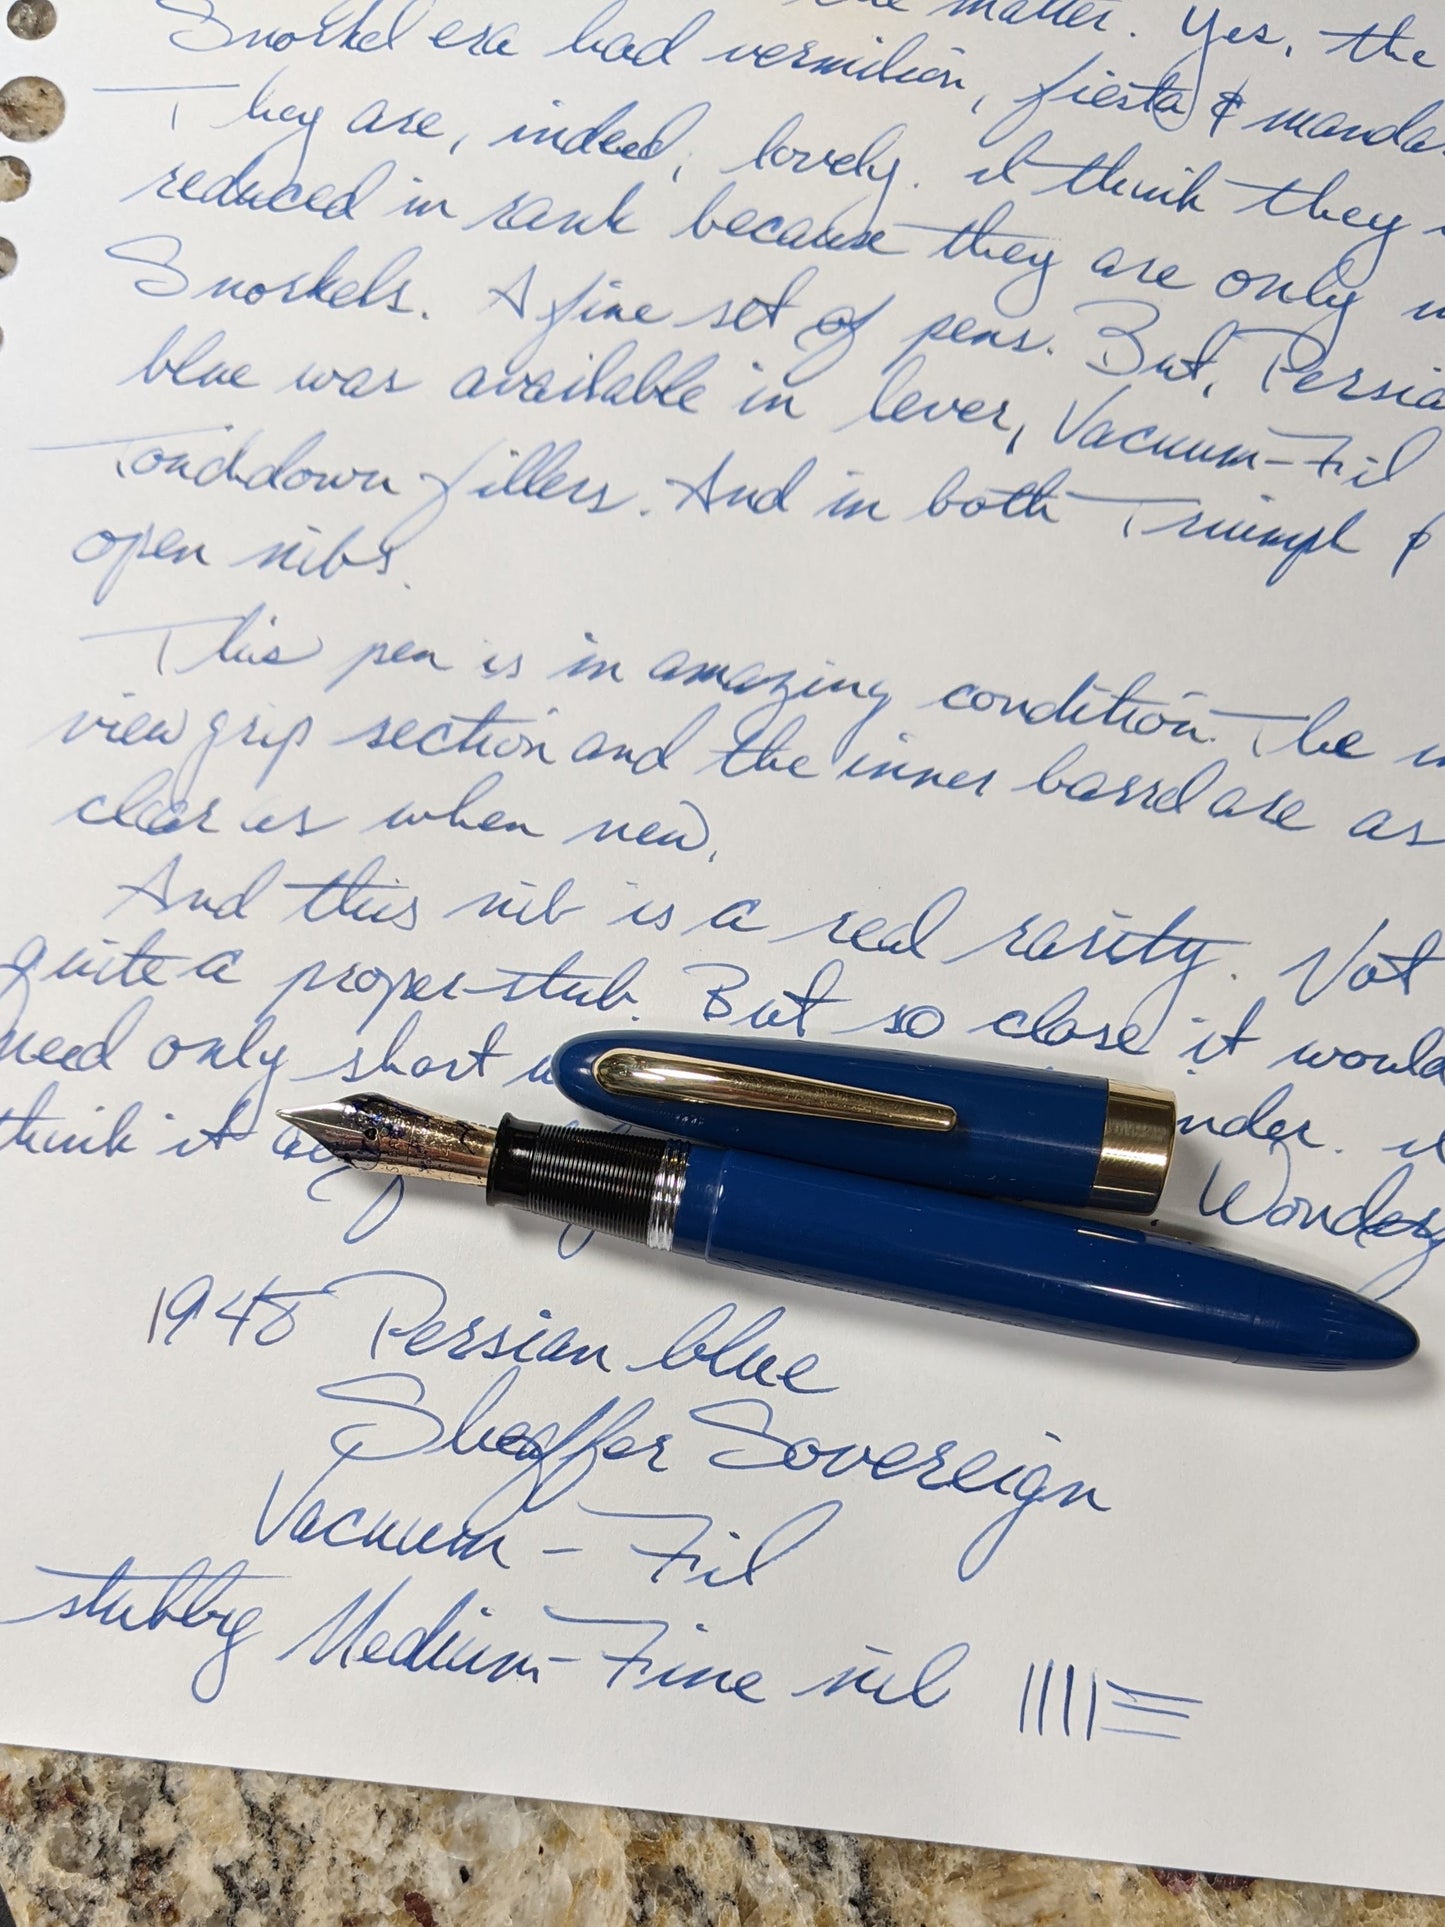 the matter. Yes, the
Snorkel era had vermilion, fiesta & manda
They are, indeed, lovely. I think they
reduced in rank because they are only
Snorkels. A fine set of pens. But, Persia
blue was available in lever, Vacuum-Fil
Touchdown fillers. And in both Triumph &
open nibs.
This pen is in amazing condition. The
view grip section and the inner barrel are as
clear as when new.
And this nib is a real rarity. Not
quite a proper stub. But so close it would
need only short nder.
think it Wonder
1948 Persian blue
Sheaffer Sovereign
Vacuum-Fil
stubby Medium-Fine nib